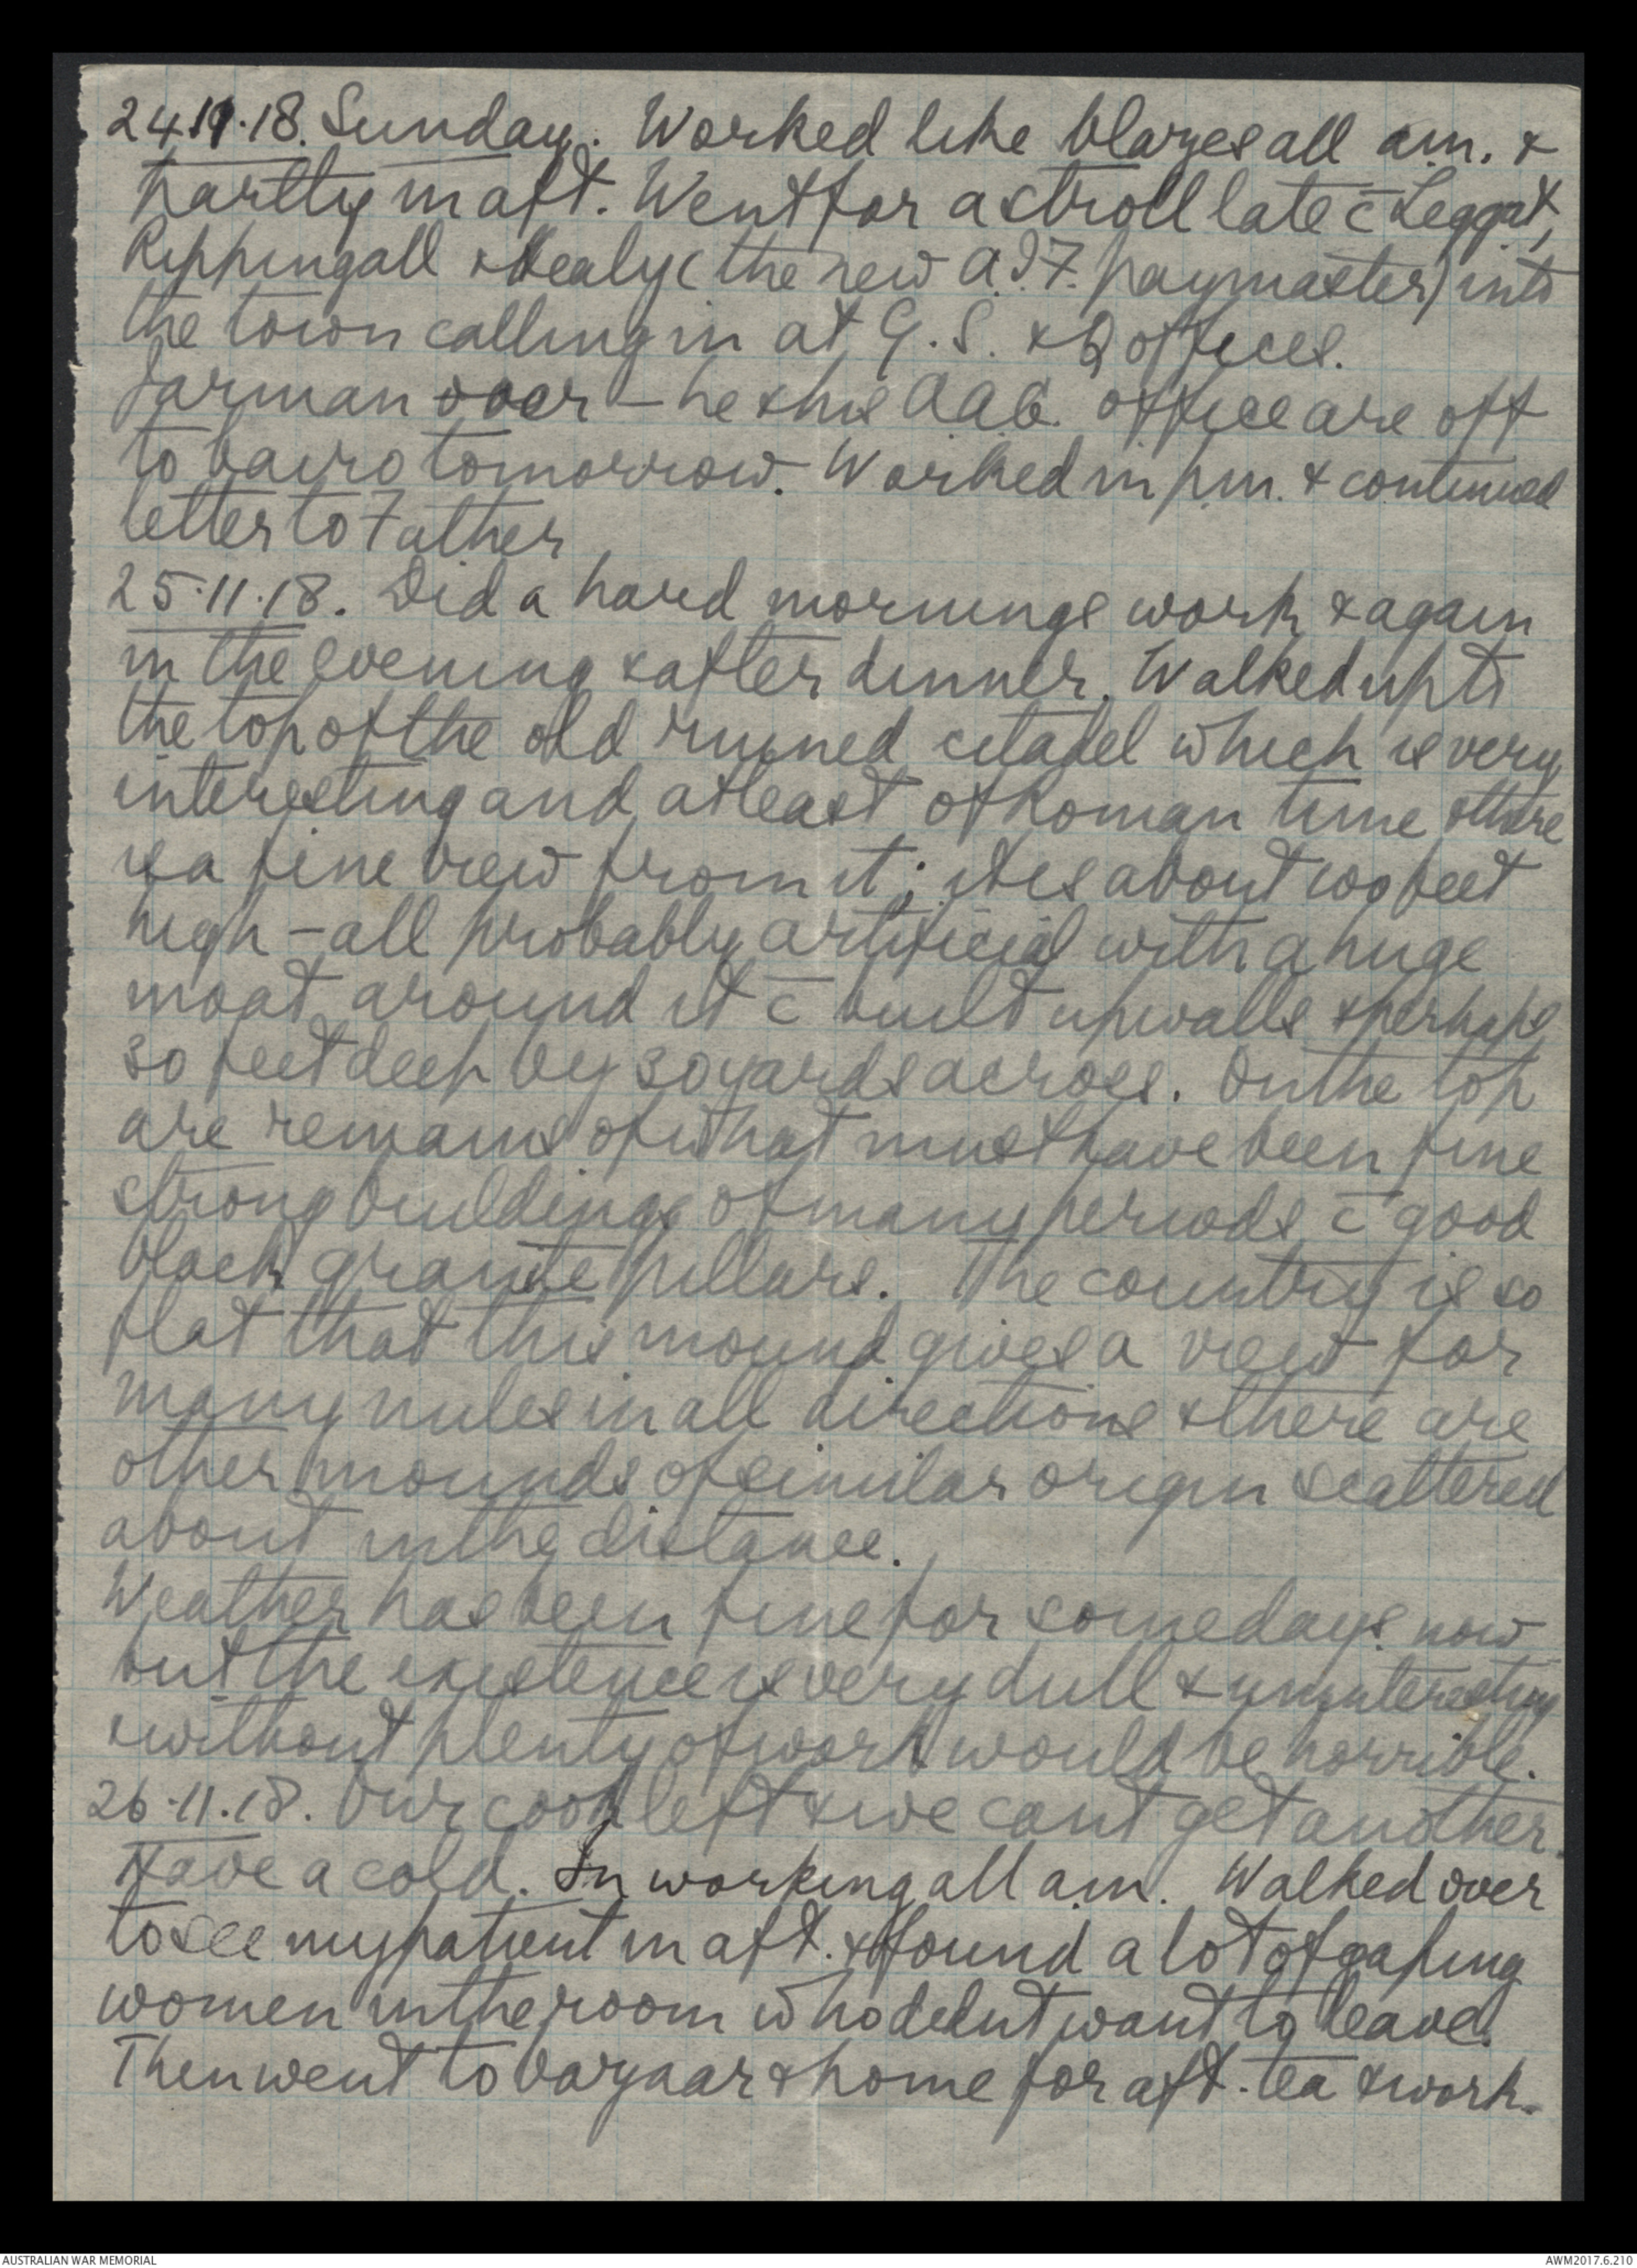 24.11.18. Sunday. Worked like blazes all am. &
partly in aft. Went for a stroll late c̄ Leggat,
Rippingall & Healy (the new A.I.F. paymaster) into
the town calling in at G.S. & Q offices.
Jarman over – he & his A.A.G. office are off
to Cairo tomorrow. Worked in p.m. & continued
letter to Father
25.11.18. Did a hard mornings work & again
in the evening & after dinner. Walked up to
the top of the old ruined citadel which is very
interesting and at least of Roman time & there
is a fine view from it; it is about 100 feet
high – all probably artificial with a huge
moat around it c̄ built up walls & perhaps
30 feet deep by 30 yards across. On the top
are remains of what must have been fine
strong buildings of many periods c̄ good
black granite pillars. The country is so
flat that this mound gives a view for
many miles in all directions & there are
other mounds of similar origin scattered
about in the distance.
Weather has been fine for some days now
but the existence is very dull & uninteresting
& without plenty of work would be horrible.
26.11.18. Our cook left & we cant get another.
Have a cold. In working all am. Walked over
to see my patient in aft. & found a lot of gaping
women in the room who didnt want to leave.
Then went to bazaar & home for aft. tea & work.
AUSTRALIAN WAR MEMORIAL
AWM2017.6.210